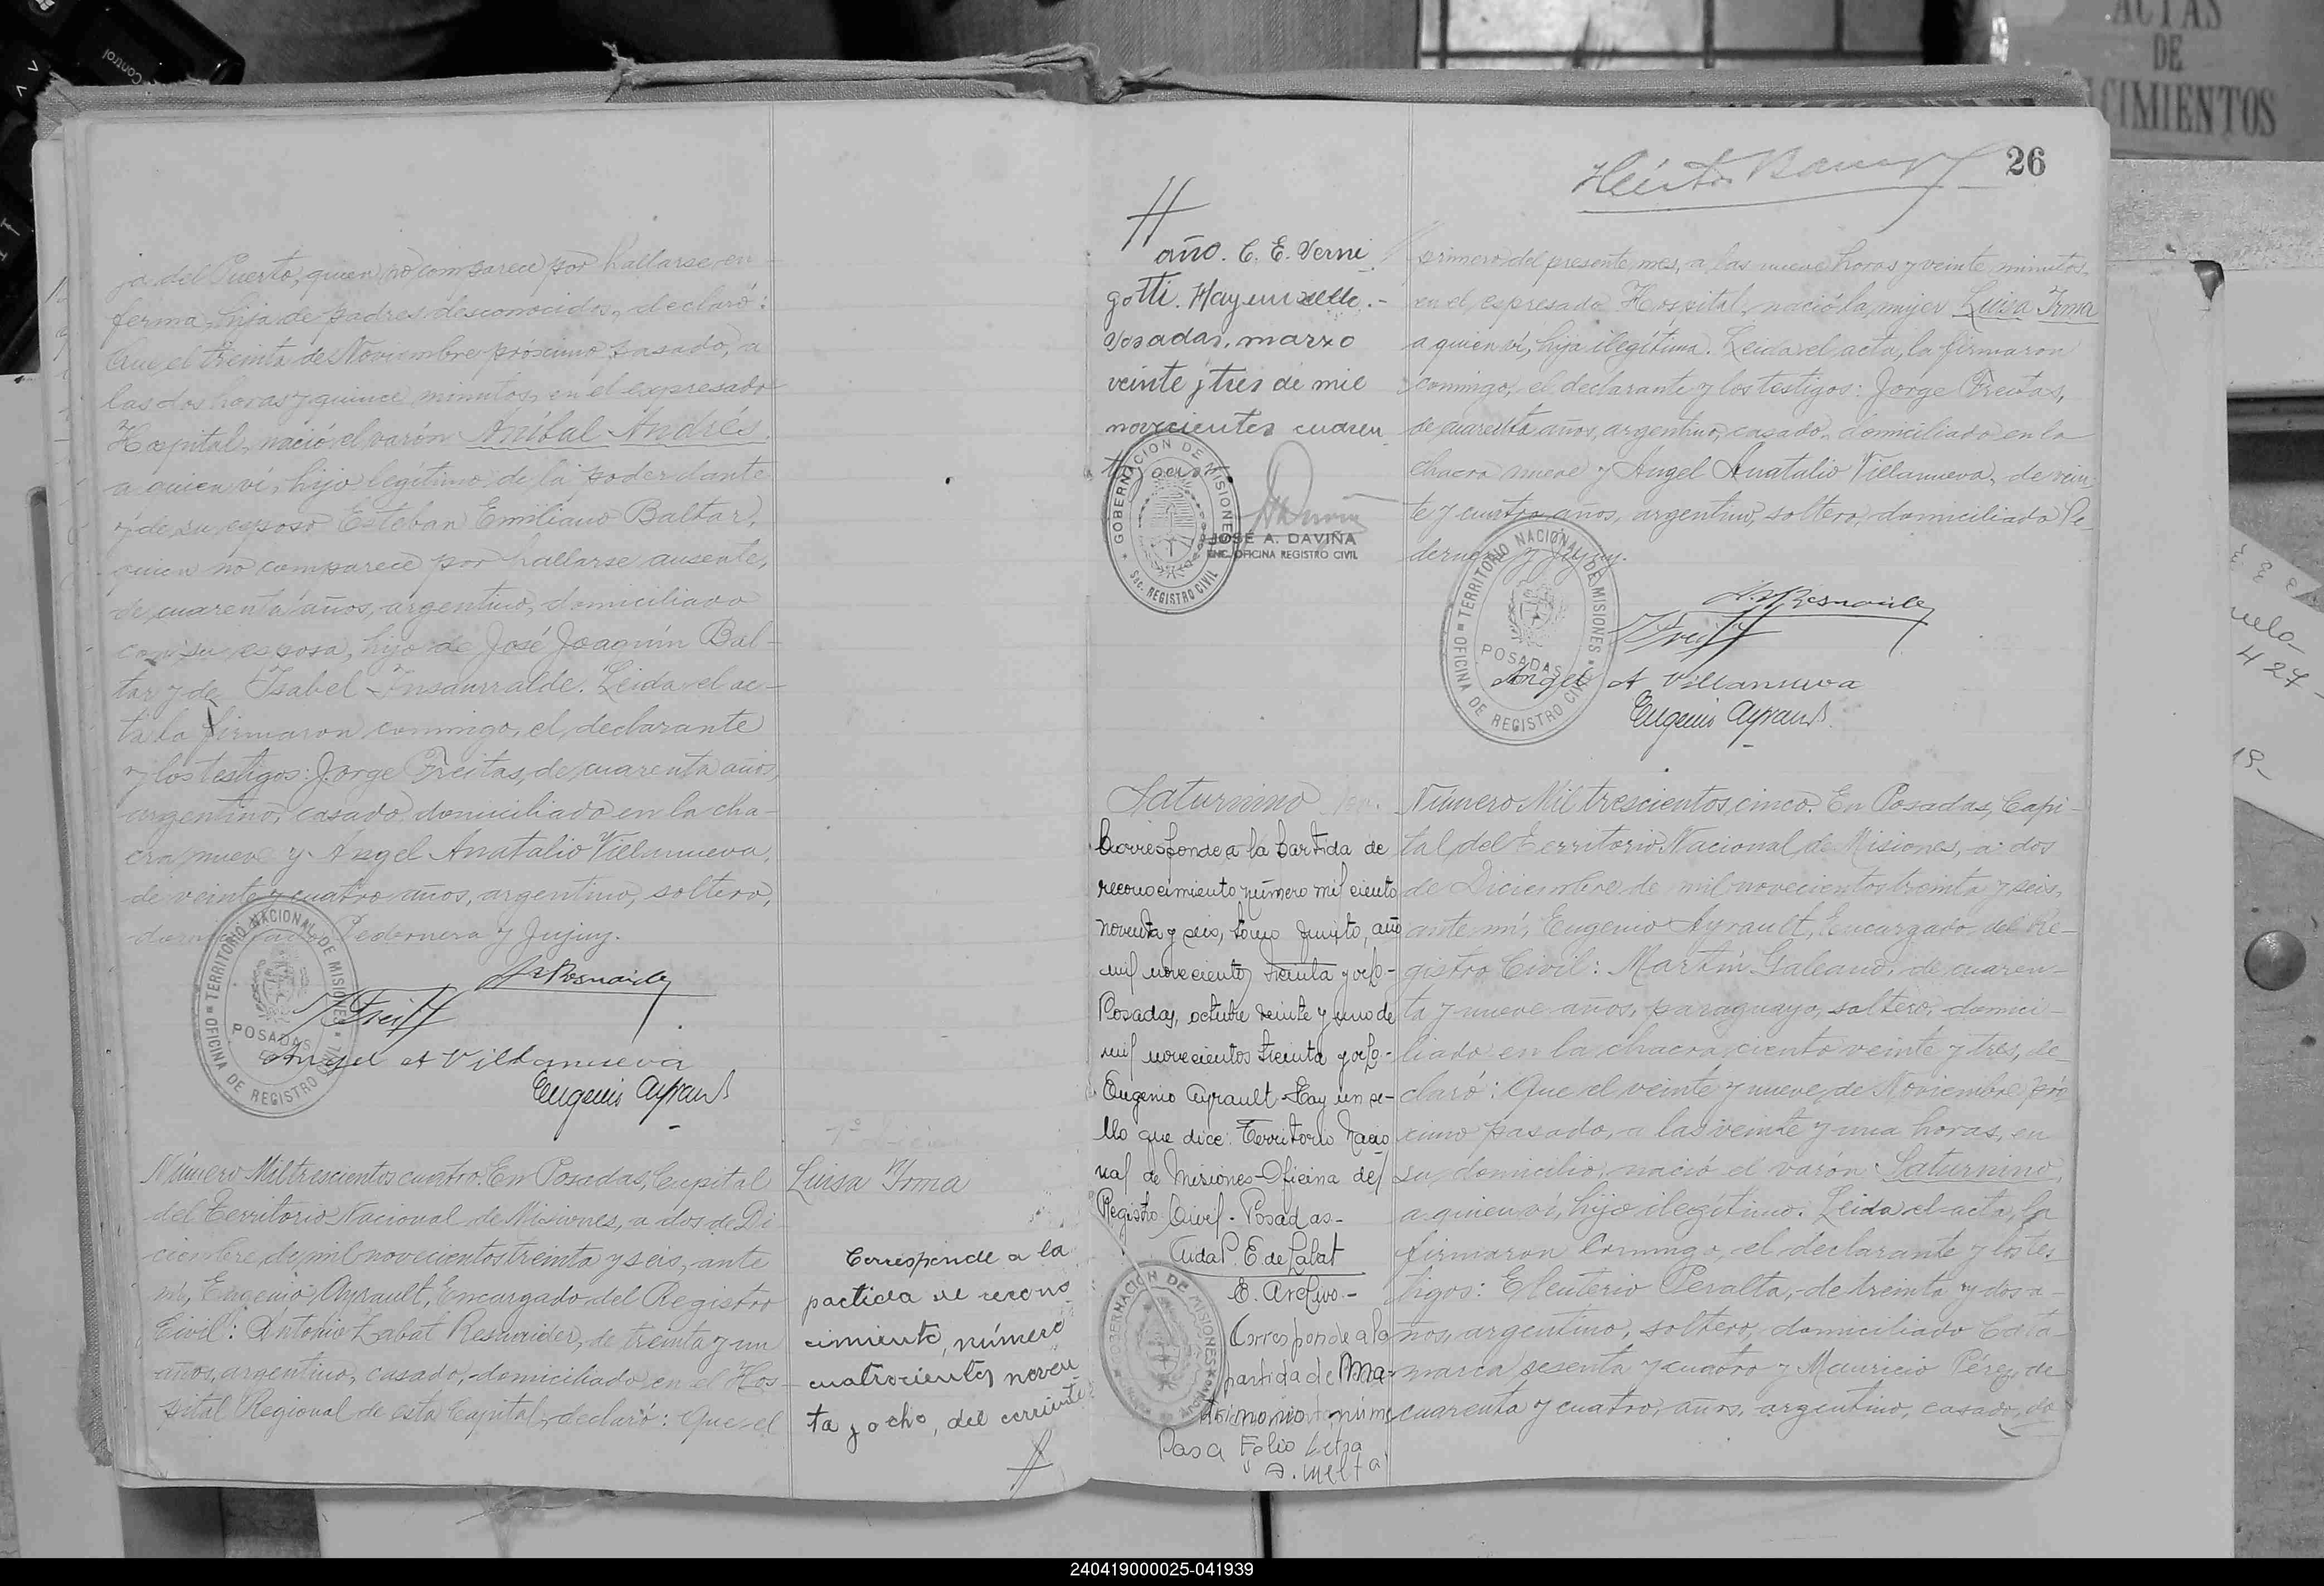 ja del Puerto, quien no comparece por hallarse en-
ferma, hija de padres desconocidos, declaró:
Que el treinta de Noviembre próximo pasado, a
las dos horas y quince minutos, en el expresado
Hospital, nació el varón Aníbal Andrés,
a quien ví, hijo legítimo de la poderdante
y de su esposo Esteban Emiliano Baltar,
quien no comparece por hallarse ausente,
de cuarenta años, argentino, domiciliado
con su esposa, hijo de José Joaquín Bal-
tar y de Isabel Insaurralde. Leida el ac-
ta la firmaron conmigo, el declarante
y los testigos: Jorge Freitas, de cuarenta años,
argentino, casado, domiciliado en la cha-
cra nueve y Angel Anatalio Villanueva,
de veinte y cuatro años, argentino, soltero,
Pedernera y Jujuy.
TERRITORIO NACIONAL DE MISIONES
OFICINA DE REGISTRO CIVIL
POSADAS
J Freit
Angel A Villanueva
Eugenio Ayrault
Número Mil trescientos cuatro. En Posadas, Capital
del Territorio Nacional de Misiones, a dos de Di
ciembre de mil novecientos treinta y seis, ante
mí, Eugenio Ayrault, Encargado del Registro
Civil: Antonio Labat Resnaider, de treinta y un
años, argentino, casado, domiciliado en el Hos-
pital Regional de esta Capital, declaró: Que el
Luisa Irma
Corresponde a la
partida de recono
cimiento, número
cuatrocientos noven
ta y ocho, del corriente
26
año. C. E. Verni
gotti. Hay un sello.-
Posadas, marzo
veinte y tres de mil
novecientos cuaren
GOBERNACION DE MISIONES
Sec. REGISTRO CIVIL
JOSE A. DAVIÑA
ENC. OFICINA REGISTRO CIVIL
primero del presente mes, a las nueve horas y veinte minutos
en el expresado Hospital, nació la mujer Luisa Irma
a quien ví, hija ilegítima. Leida el acta, la firmaron
conmigo, el declarante y los testigos: Jorge Freitas,
de cuarenta años, argentino, casado, domiciliado en la
chacra nueve y Angel Anatalio Villanueva, de vein
te y cuatro años, argentino, soltero, domiciliado Pe-
dernera y Jujuy.
TERRITORIO NACIONAL DE MISIONES
OFICINA DE REGISTRO CIVIL
POSADAS
J Freit
Angel A Villanueva
Eugenio Ayrault
Saturnino
Corresponde a la partida de
reconocimiento número mil ciento
noventa y seis, tomo quinto, año
mil novecientos treinta y ocho-
Posadas, octubre veinte y uno de
mil novecientos treinta y ocho-
Eugenio Ayrault-Hay un se-
llo que dice: Territorio Nacio
nal de Misiones-Oficina del
Registro Civil-Posadas-
Aida P. E. de Labat
E. Archivo.-
GOBERNACION DE MISIONES
Corresponde a la
partida de Ma-
trimonio núme
Pasa Folio Letra
A. Vuelta
Número Mil trescientos cinco. En Posadas, Capi-
tal del Territorio Nacional de Misiones, a dos
de Diciembre de mil novecientos treinta y seis,
ante mí, Eugenio Ayrault, Encargado del Re-
gistro Civil: Martín Galeano, de cuaren-
ta y nueve años, paraguayo, soltero, domici-
liado en la chacra ciento veinte y tres, de-
claró: Que el veinte y nueve de Noviembre pró
ximo pasado, a las veinte y una horas, en
su domicilio, nació el varón Saturnino,
a quien ví, hijo ilegítimo. Leida el acta, la
firmaron conmigo, el declarante y los tes
tigos: Eleuterio Peralta, de treinta y dos a-
ños, argentino, soltero, domiciliado Cata-
marca sesenta y cuatro y Mauricio Pérez, de
cuarenta y cuatro años, argentino, casado, do
ACTAS
DE
CIMIENTOS
Control
424
240419000025-041939